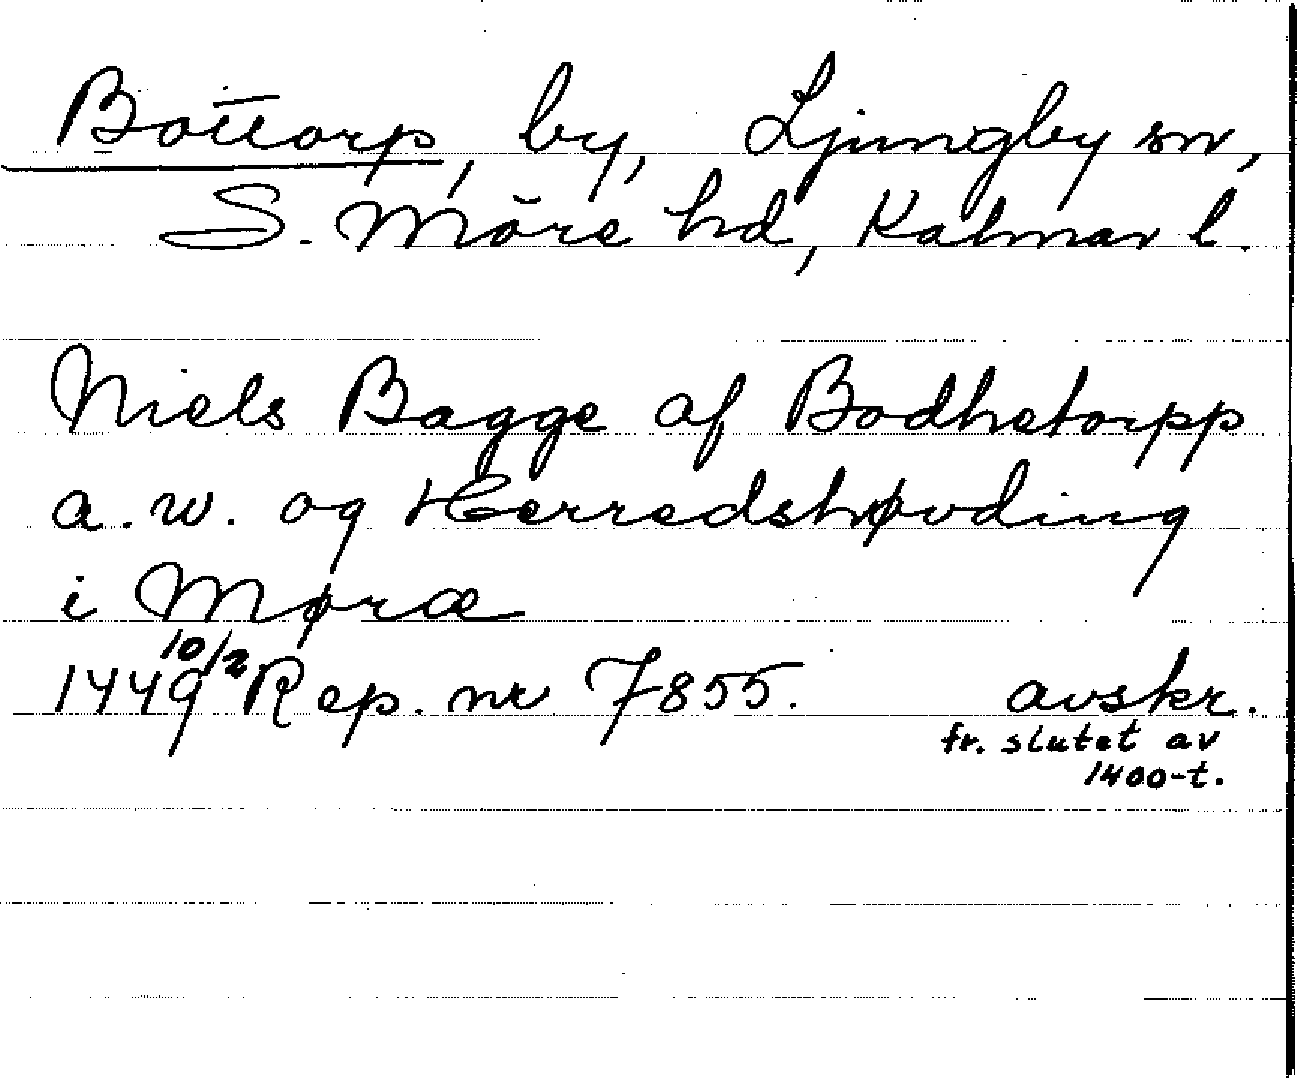 Bottorp, by, Ljungby sn,
S. Möre hd, Kalmar l.
Niels Bagge af Bodhetorpp
a. w. og Herredshøvding
i Møræ
1449 10/2 Rep. nr 7855. avskr.
fr. slutet av
1400-t.